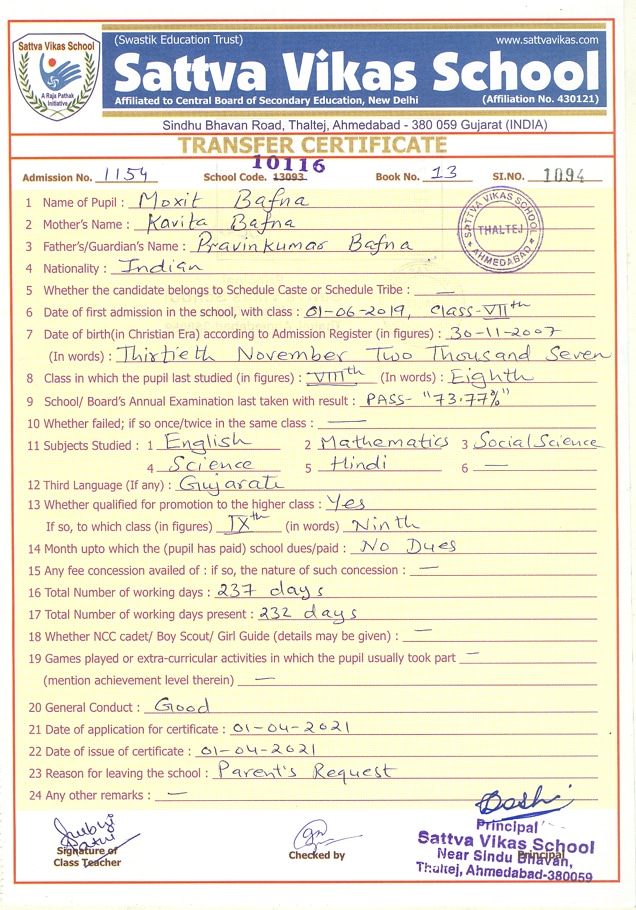 Sattva Vikas School
A Raja Pathak
Initiative
(Swastik Education Trust)
www.sattvavikas.com
Sattva Vikas School
Affiliated to Central Board of Secondary Education, New Delhi
(Affiliation No. 430121)
Sindhu Bhavan Road, Thaltej, Ahmedabad - 380 059 Gujarat (INDIA)
TRANSFER CERTIFICATE
10116
Admission No. 1154 School Code. 13093 Book No. 13 SI.NO. 1094
SATTVA VIKAS SCHOOL
THALTEJ
AHMEDABAD
1 Name of Pupil : Moxit Bafna
2 Mother's Name : Kavita Bafna
3 Father's/Guardian's Name : Pravinkumar Bafna
4 Nationality : Indian
5 Whether the candidate belongs to Schedule Caste or Schedule Tribe : —
6 Date of first admission in the school, with class : 01-06-2019, Class-VIIth
7 Date of birth(in Christian Era) according to Admission Register (in figures) : 30-11-2007
(In words) : Thirtieth November Two Thousand Seven
8 Class in which the pupil last studied (in figures) : VIIIth (In words) : Eighth
9 School/ Board's Annual Examination last taken with result : PASS- "73.77%"
10 Whether failed; if so once/twice in the same class : —
11 Subjects Studied : 1 English 2 Mathematics 3 Social Science
4 Science 5 Hindi 6 —
12 Third Language (If any) : Gujarati
13 Whether qualified for promotion to the higher class : Yes
If so, to which class (in figures) IXth (in words) Ninth
14 Month upto which the (pupil has paid) school dues/paid : No Dues
15 Any fee concession availed of : if so, the nature of such concession : —
16 Total Number of working days : 237 days
17 Total Number of working days present : 232 days
18 Whether NCC cadet/ Boy Scout/ Girl Guide (details may be given) : —
19 Games played or extra-curricular activities in which the pupil usually took part —
(mention achievement level therein) —
20 General Conduct : Good
21 Date of application for certificate : 01-04-2021
22 Date of issue of certificate : 01-04-2021
23 Reason for leaving the school : Parent's Request
24 Any other remarks : —
Signature of
Class Teacher
Checked by
Principal
Principal
Sattva Vikas School
Near Sindu Bhavan,
Thaltej, Ahmedabad-380059